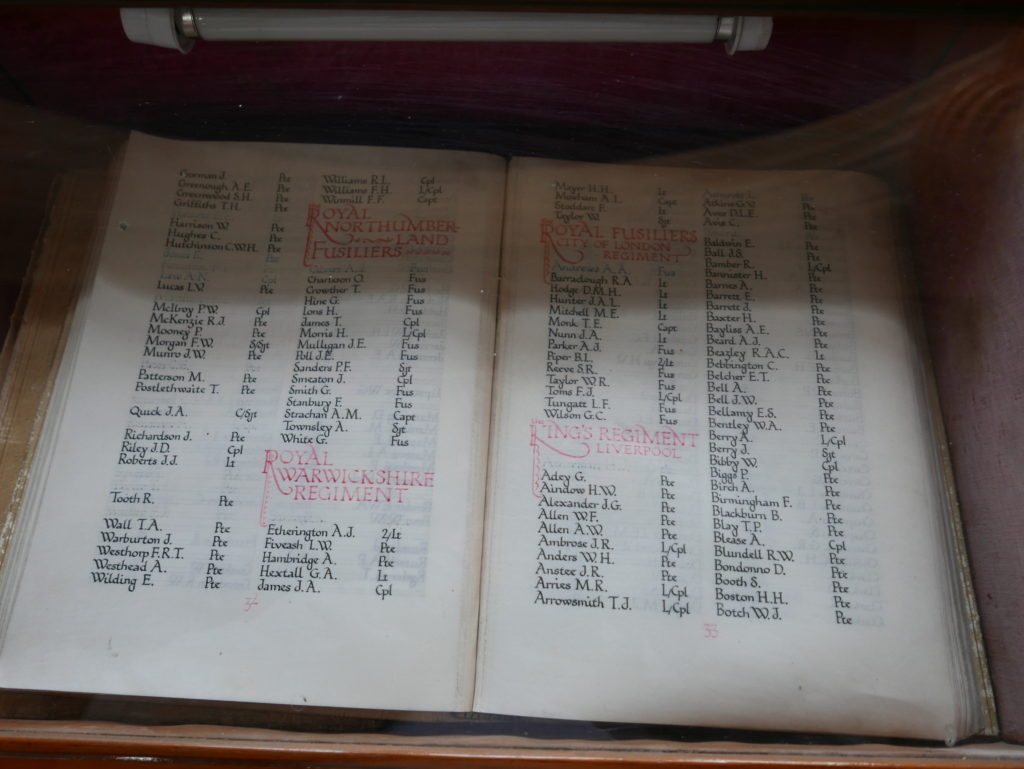 Gorman J. Pte
Greenough A.E. Pte
Greenwood S.H. Pte
Griffiths T.H. Pte
Harrison W. Pte
Hughes C. Pte
Hutchinson C.W.H. Pte
Law A.N.
Lucas L.V. Pte
McIlroy P.W. Cpl
McKenzie R.J. Pte
Mooney P. Pte
Morgan F.W. S/Sjt
Munro J.W. Pte
Patterson M. Pte
Postlethwaite T. Pte
Quick J.A. C/Sjt
Richardson J. Pte
Riley J.D. Cpl
Roberts J.J. Lt
Tooth R. Pte
Wall T.A. Pte
Warburton J. Pte
Westhorp F.R.T. Pte
Westhead A. Pte
Wilding E. Pte
Williams R.L. Cpl
Williams F.H. L/Cpl
Winmill F.F. Capt
ROYAL
NORTHUMBER-
LAND
FUSILIERS
Charlton O. Fus
Crowther T. Fus
Hine G. Fus
Ions H. Fus
James T. Cpl
Morris H. L/Cpl
Mulligan J.E. Fus
Poll J.E. Fus
Sanders P.F. Sjt
Smeaton J. Cpl
Smith G. Fus
Stanbury F. Fus
Strachan A.M. Capt
Townsley A. Sjt
White G. Fus
ROYAL
WARWICKSHIRE
REGIMENT
Etherington A.J. 2/Lt
Fiveash L.W. Pte
Hambridge A. Pte
Hextall G.A. Lt
James J.A. Cpl
Mayer H.H. Lt
Moxham A.L. Capt
Stoddart F. Lt
Taylor W. Sjt
ROYAL FUSILIERS
CITY OF LONDON
REGIMENT
Andrews A.A. Fus
Barradough R.A. Lt
Hodge D.M.H. Lt
Hunter J.A.L. Lt
Mitchell M.E. Lt
Monk T.E. Capt
Nunn J.A. Lt
Parker A.J. Fus
Piper B.L. 2/Lt
Reeve S.R. Fus
Taylor W.R. Fus
Toms F.J. L/Cpl
Tungatt L.F. Fus
Wilson G.C. Fus
KING'S REGIMENT
LIVERPOOL
Adey G. Pte
Aindow H.W. Pte
Alexander J.G. Pte
Allen W.F. Pte
Allen A.W. Pte
Ambrose J.R. L/Cpl
Anders W.H. Pte
Anstee J.R. Pte
Arries M.R. L/Cpl
Arrowsmith T.J. L/Cpl
Atkins G.V. Pte
Avis D.L.E. Pte
Avis C. Pte
Baldwin E. Pte
Ball J.S. Pte
Bamber R. L/Cpl
Bannister H. Pte
Barnes A. Pte
Barrett E. Pte
Barrett J. Pte
Baxter H. Pte
Bayliss A.E. Pte
Beard A.J. Pte
Beazley R.A.C. Lt
Bebbington C. Pte
Belcher E.T. Pte
Bell A. Pte
Bell J.W. Pte
Bellamy E.S. Pte
Bentley W.A. Pte
Berry A. L/Cpl
Berry J. Sjt
Bibby W. Cpl
Biggs P. Pte
Birch A. Pte
Birmingham F. Pte
Blackburn B. Pte
Blay T.P. Pte
Blease A. Cpl
Blundell R.W. Pte
Bondonno D. Pte
Booth S. Pte
Boston H.H. Pte
Botch W.J. Pte